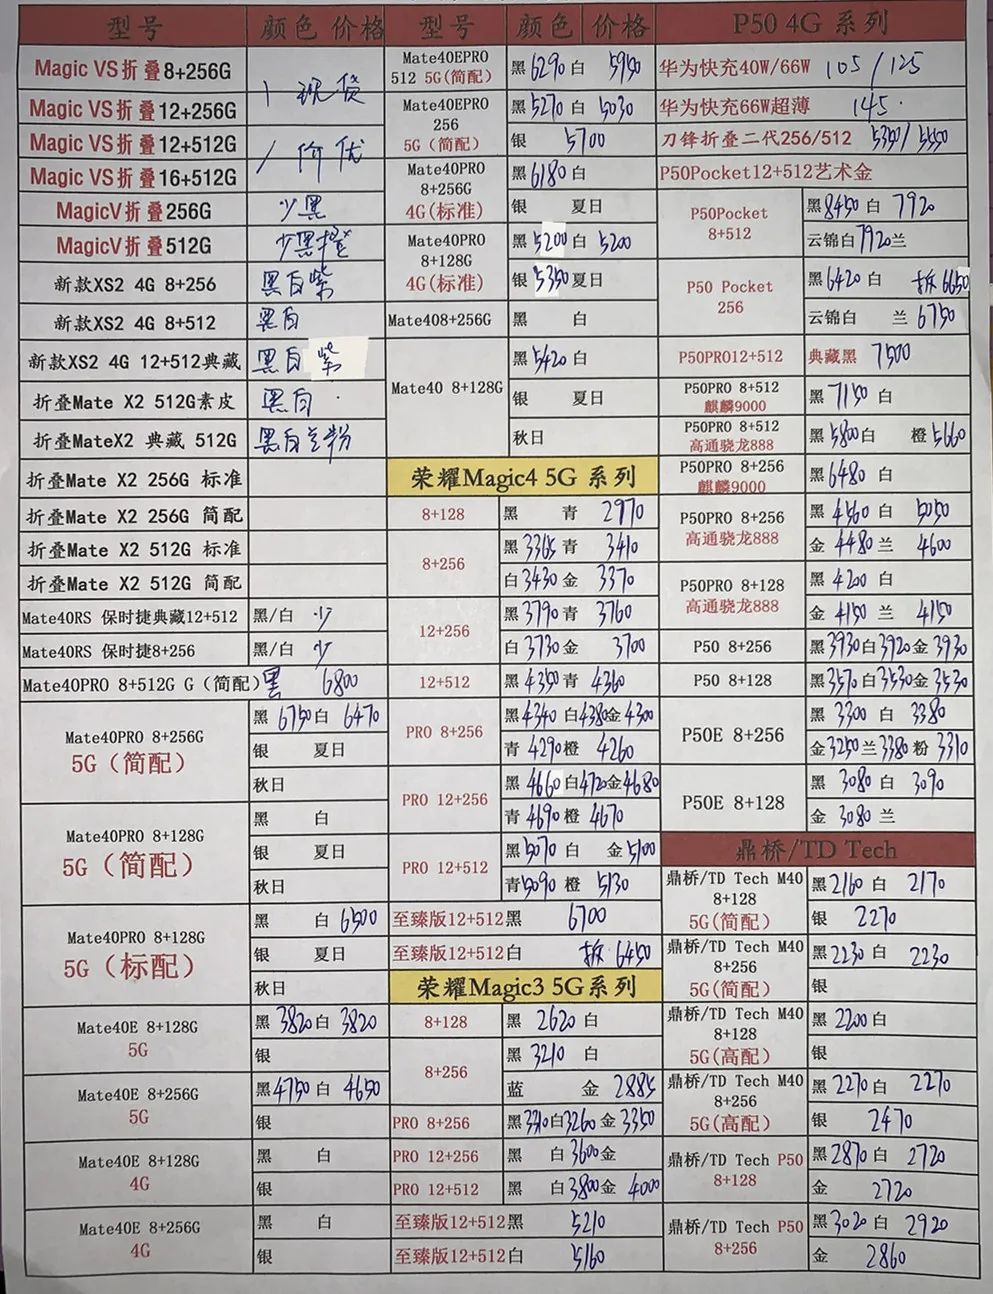 型号 颜色 价格
Magic VS折叠8+256G
Magic VS折叠12+256G 现货
Magic VS折叠12+512G
Magic VS折叠16+512G 价优
MagicV折叠256G 少黑
MagicV折叠512G 少黑橙
新款XS2 4G 8+256 黑白紫
新款XS2 4G 8+512 黑白
新款XS2 4G 12+512典藏 黑白紫
折叠Mate X2 512G素皮 黑白
折叠MateX2 典藏 512G 黑白兰粉
折叠Mate X2 256G 标准
折叠Mate X2 256G 简配
折叠Mate X2 512G 标准
折叠Mate X2 512G 简配
Mate40RS 保时捷典藏12+512 黑/白 少
Mate40RS 保时捷8+256 黑/白 少
Mate40PRO 8+512G G（简配）黑 6800
Mate40PRO 8+256G
5G（简配）
黑 6750 白 6470
银 夏日
秋日
Mate40PRO 8+128G
5G（简配）
黑 白
银 夏日
秋日
Mate40PRO 8+128G
5G（标配）
黑 白 6500
银 夏日
秋日
Mate40E 8+128G
5G
黑 3820 白 3820
银
Mate40E 8+256G
5G
黑 4750 白 4650
银
Mate40E 8+128G
4G
黑 白
银
Mate40E 8+256G
4G
黑 白
银
型号 颜色 价格
Mate40EPRO
512 5G(简配)
黑 6290 白 5950
Mate40EPRO
256
5G（简配）
黑 5270 白 5030
银 5700
Mate40PRO
8+256G
4G(标准)
黑 6180 白
银 夏日
Mate40PRO
8+128G
4G(标准)
黑 5200 白 5200
银 5350 夏日
Mate408+256G 黑 白
Mate40 8+128G
黑 5420 白
银 夏日
秋日
荣耀Magic4 5G 系列
8+128 黑 青 2970
8+256
黑 3365 青 3410
白 3430 金 3370
12+256
黑 3790 青 3760
白 3730 金 3700
12+512 黑 4350 青 4360
PRO 8+256
黑 4340 白 4380 金 4300
青 4290 橙 4260
PRO 12+256
黑 4660 白 4720 金 4680
青 4690 橙 4670
PRO 12+512
黑 5070 白 金 5100
青 5090 橙 5130
至臻版12+512黑 6700
至臻版12+512白 拆 6450
荣耀Magic3 5G系列
8+128 黑 2620 白
8+256
黑 3210 白
蓝 金 2885
PRO 8+256 黑 白 3260 金 3350
PRO 12+256 黑 白 3600 金
PRO 12+512 黑 白 3800 金 4000
至臻版12+512黑 5210
至臻版12+512白 5160
P50 4G 系列
华为快充40W/66W 105/125
华为快充66W超薄 145
刀锋折叠二代256/512 5350/5550
P50Pocket12+512艺术金
P50Pocket
8+512
黑 8450 白 7920
云锦白 7920 兰
P50 Pocket
256
黑 6420 白 拆 6650
云锦白 兰 6750
P50PRO12+512 典藏黑 7500
P50PRO 8+512
麒麟9000
黑 7150 白
P50PRO 8+512
高通骁龙888
黑 5800 白 橙 5660
P50PRO 8+256
麒麟9000
黑 6480 白
P50PRO 8+256
高通骁龙888
黑 4560 白 5050
金 4480 兰 4600
P50PRO 8+128
高通骁龙888
黑 4200 白
金 4150 兰 4150
P50 8+256 黑 3930 白 3920 金 3930
P50 8+128 黑 3570 白 3530 金 3530
P50E 8+256
黑 3300 白 3380
金 3250 兰 3380 粉 3310
P50E 8+128
黑 3080 白 3090
金 3080 兰
鼎桥/TD Tech
鼎桥/TD Tech M40
8+128
5G(简配）
黑 2160 白 2170
银 2270
鼎桥/TD Tech M40
8+256
5G(简配）
黑 2230 白 2230
银
鼎桥/TD Tech M40
8+128
5G(高配）
黑 2200 白
银
鼎桥/TD Tech M40
8+256
5G(高配）
黑 2270 白 2270
银 2470
鼎桥/TD Tech P50
8+128
黑 2870 白 2720
金 2720
鼎桥/TD Tech P50
8+256
黑 3020 白 2920
金 2860